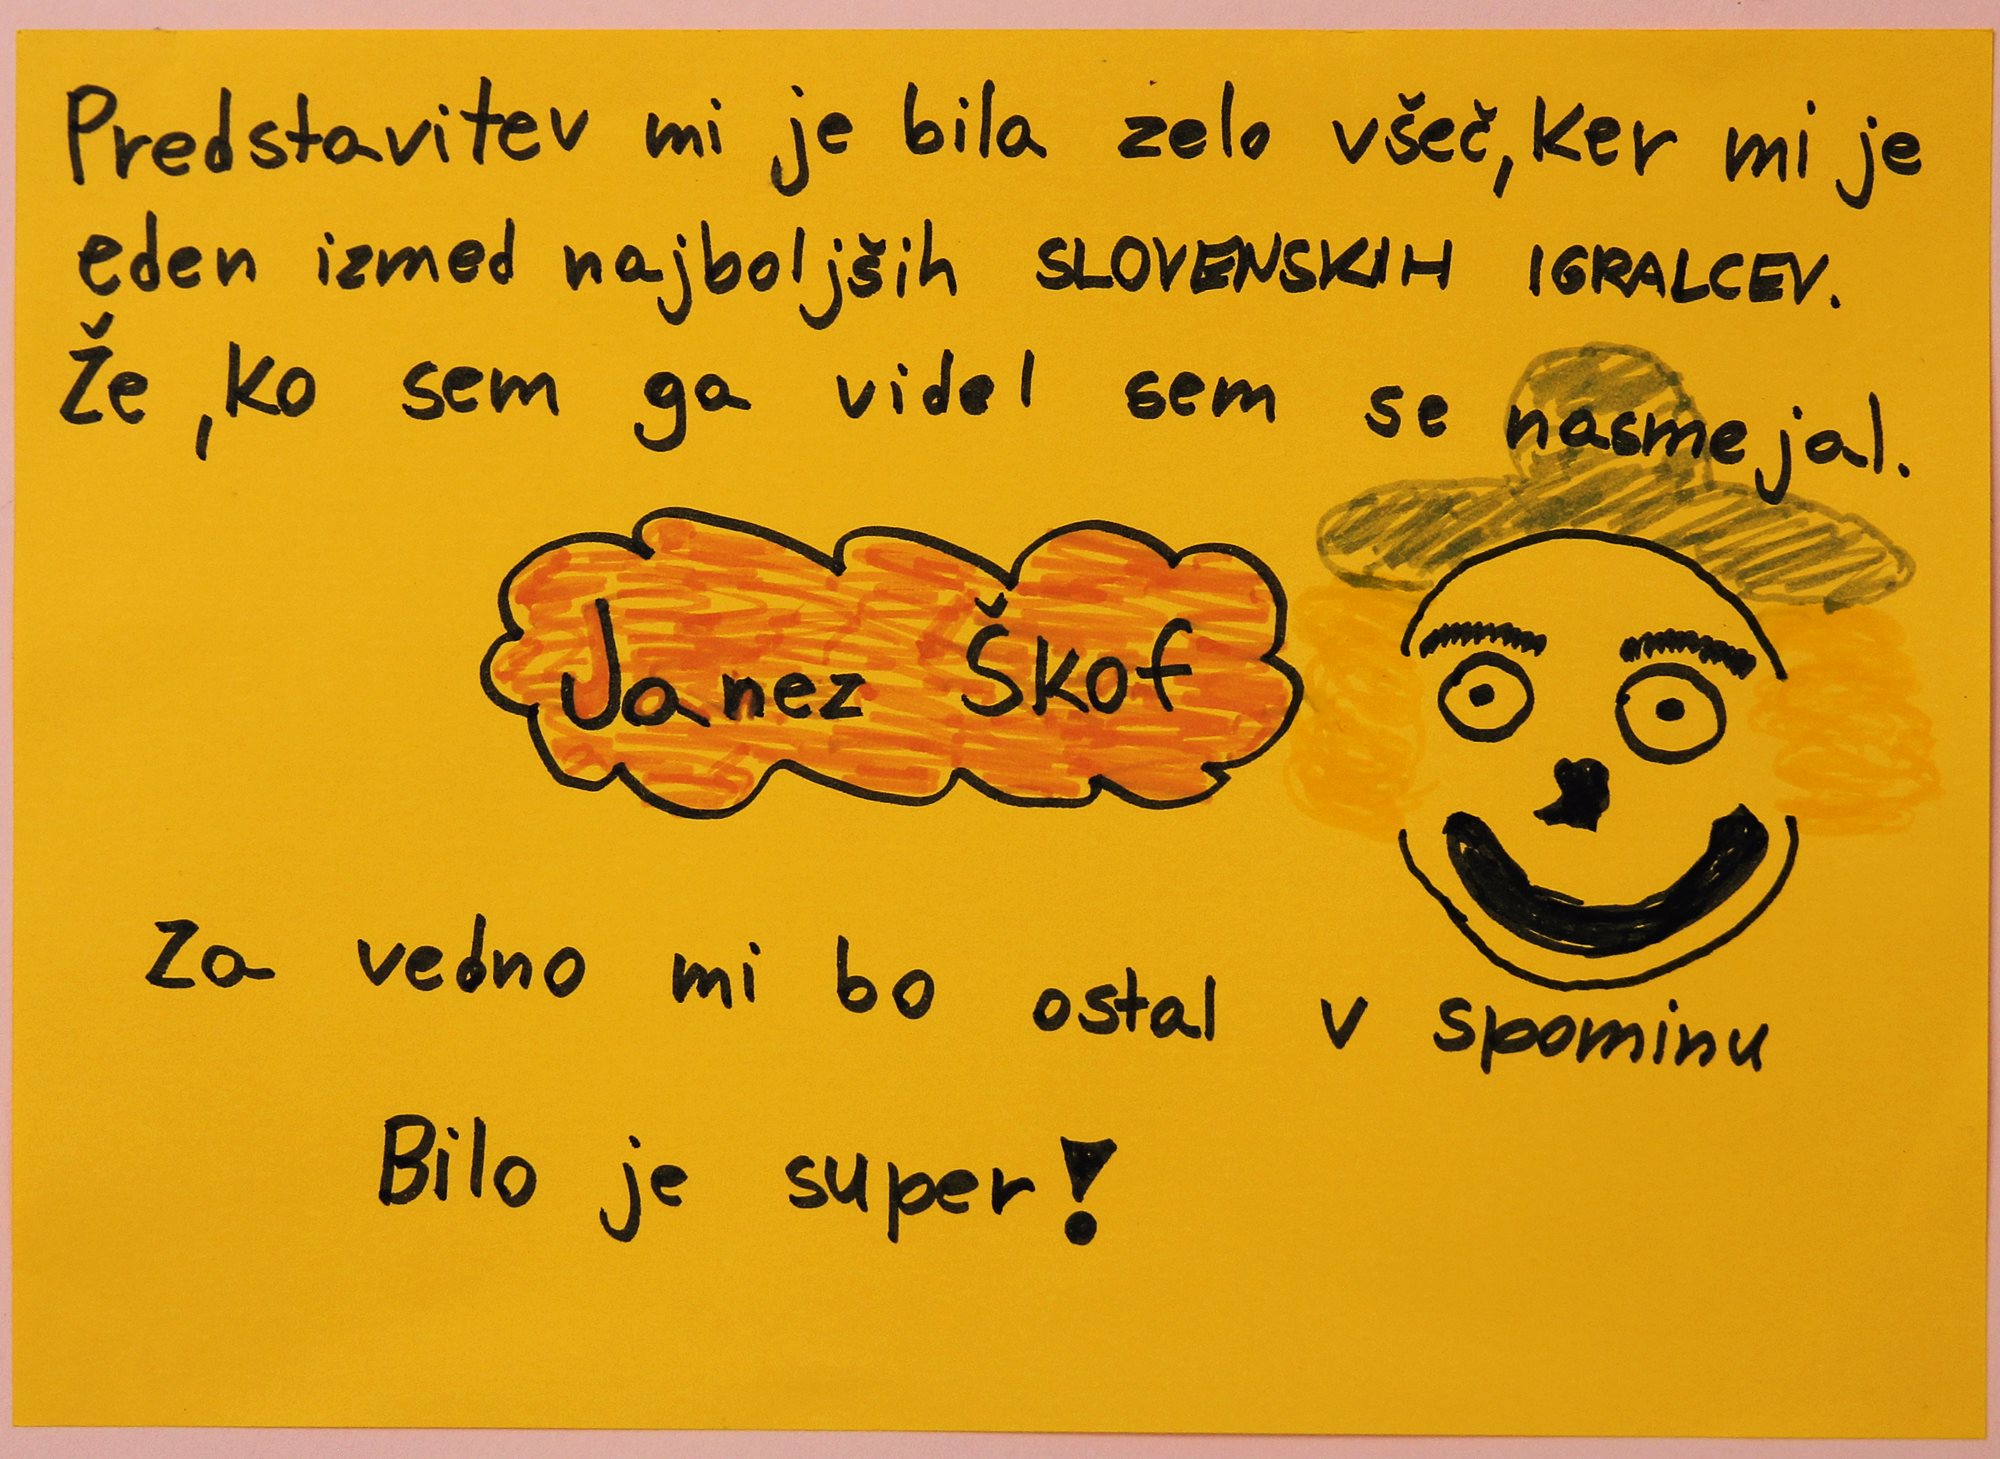 Predstavitev mi je bila zelo všeč, ker mi je
eden izmed najboljših SLOVENSKIH IGRALCEV.
Že ,ko sem ga videl sem se nasmejal.
Janez Škof
Za vedno mi bo ostal v spominu
Bilo je super!